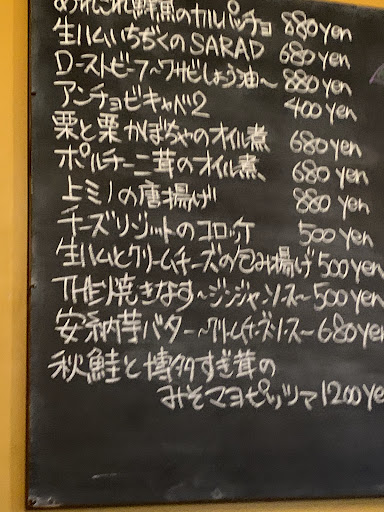 鮮魚のカルパッチョ 880yen
生ハムいちぢくのSARAD 680yen
ローストビーフ〜ワサビしょう油〜 880yen
アンチョビキャベツ 400yen
栗と栗かぼちゃのオイル煮 680yen
ポルチーニ茸のオイル煮 680yen
上ミノの唐揚げ 880yen
チーズリゾットのコロッケ 500yen
生ハムとクリームチーズの包み揚げ 500yen
THE焼きなす〜ジンジャーソース〜 500yen
安納芋バター〜クリームチーズソース〜 680yen
秋鮭と博多すぎ茸の
みそマヨピッツァ 1200ye